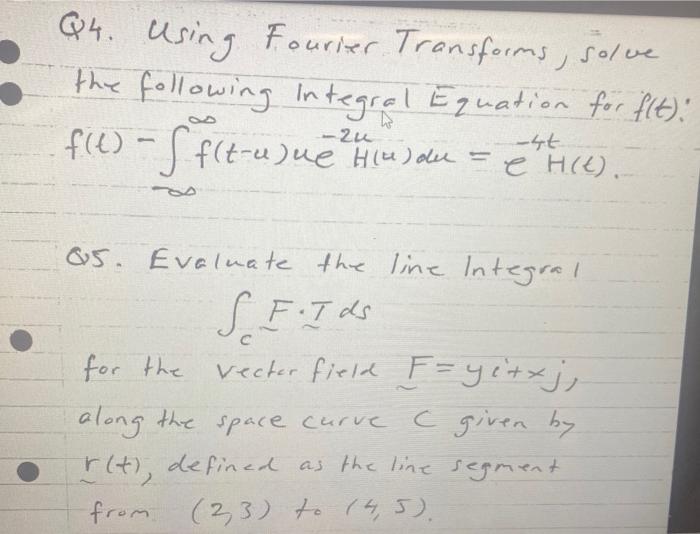 Q4. Using Fourier Transforms, solve
the following Integral Equation for f(t):
f(t) - ∫_{-∞}^{∞} f(t-u)ue^{-2u} H(u)du = e^{-4t} H(t).
Q5. Evaluate the line Integral
∫_C F·T ds
for the vector field F = yi+xj,
along the space curve C given by
r(t), defined as the line segment
from (2,3) to (4,5).